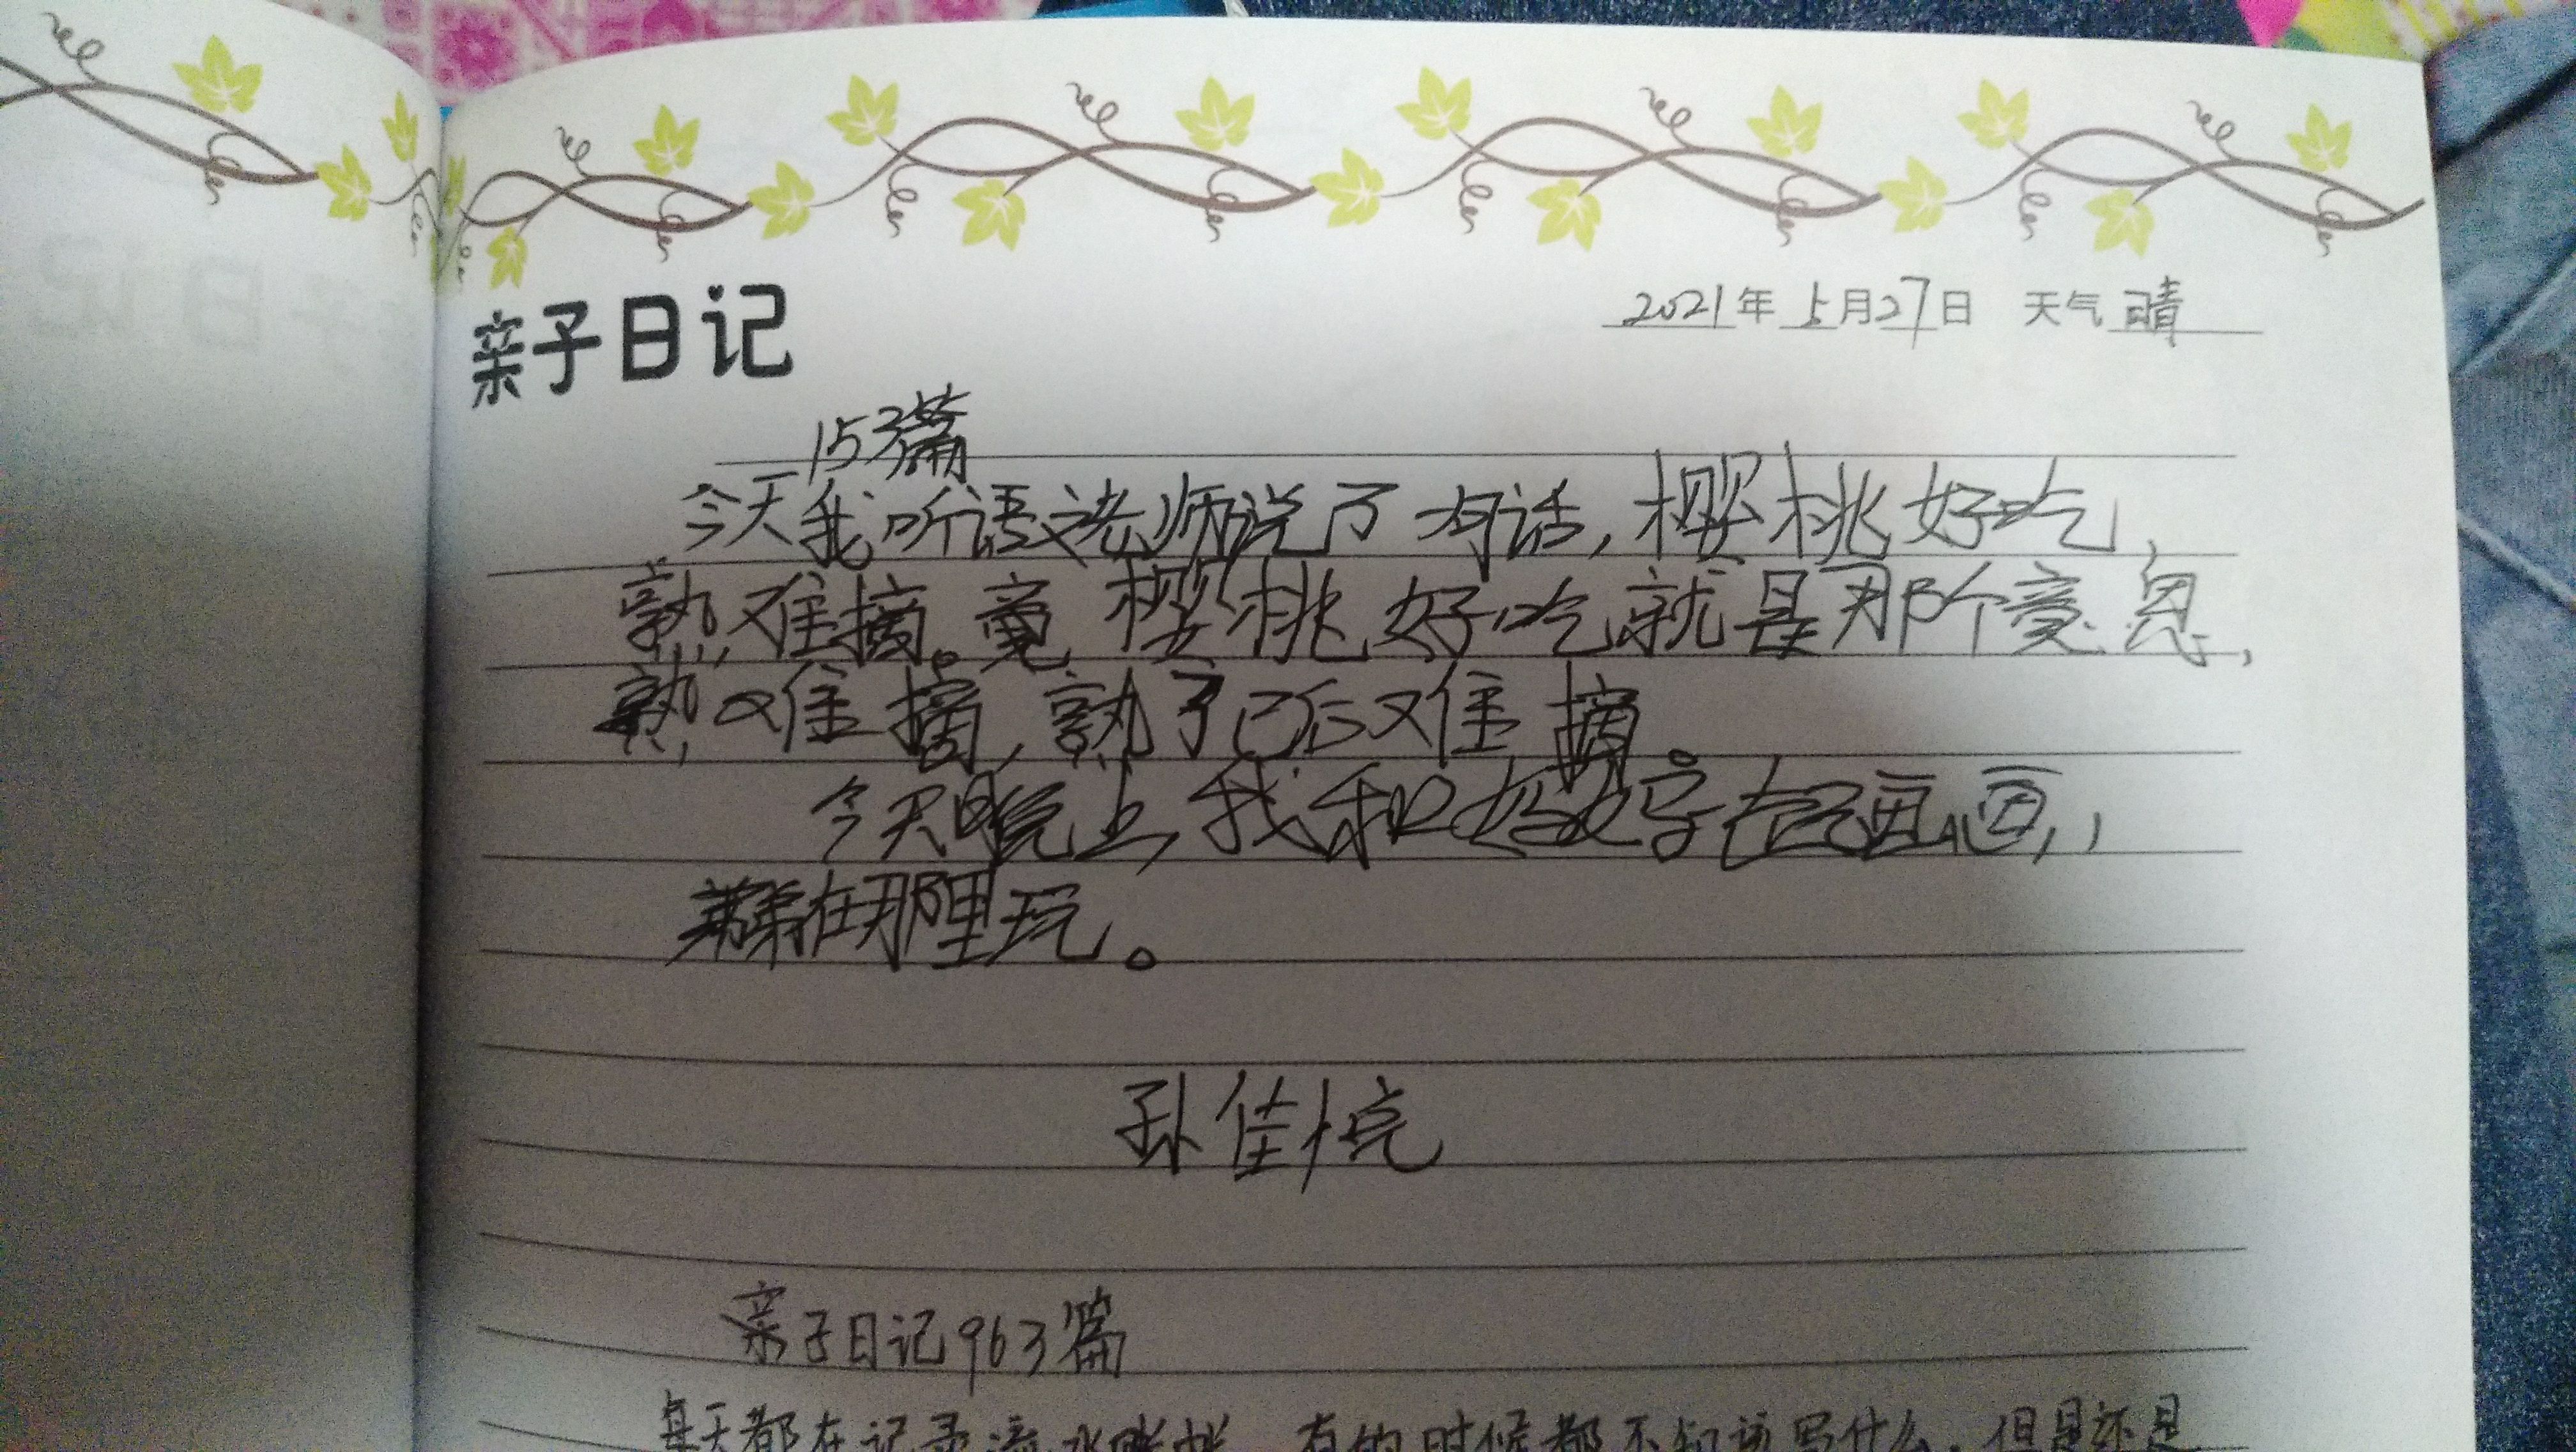 亲子日记
2021年5月27日 天气 晴
153篇
今天我听语文老师说了句话,樱桃好吃,
熟难摘。 樱桃好吃就是那个意思,
熟又难摘,熟了已后又难摘。
今天晚上,我和妈妈 画画,
弟弟在那里玩。
孙佳
亲子日记963篇
每天都在记录流水账 有的时候都不知该写什么,但是还是